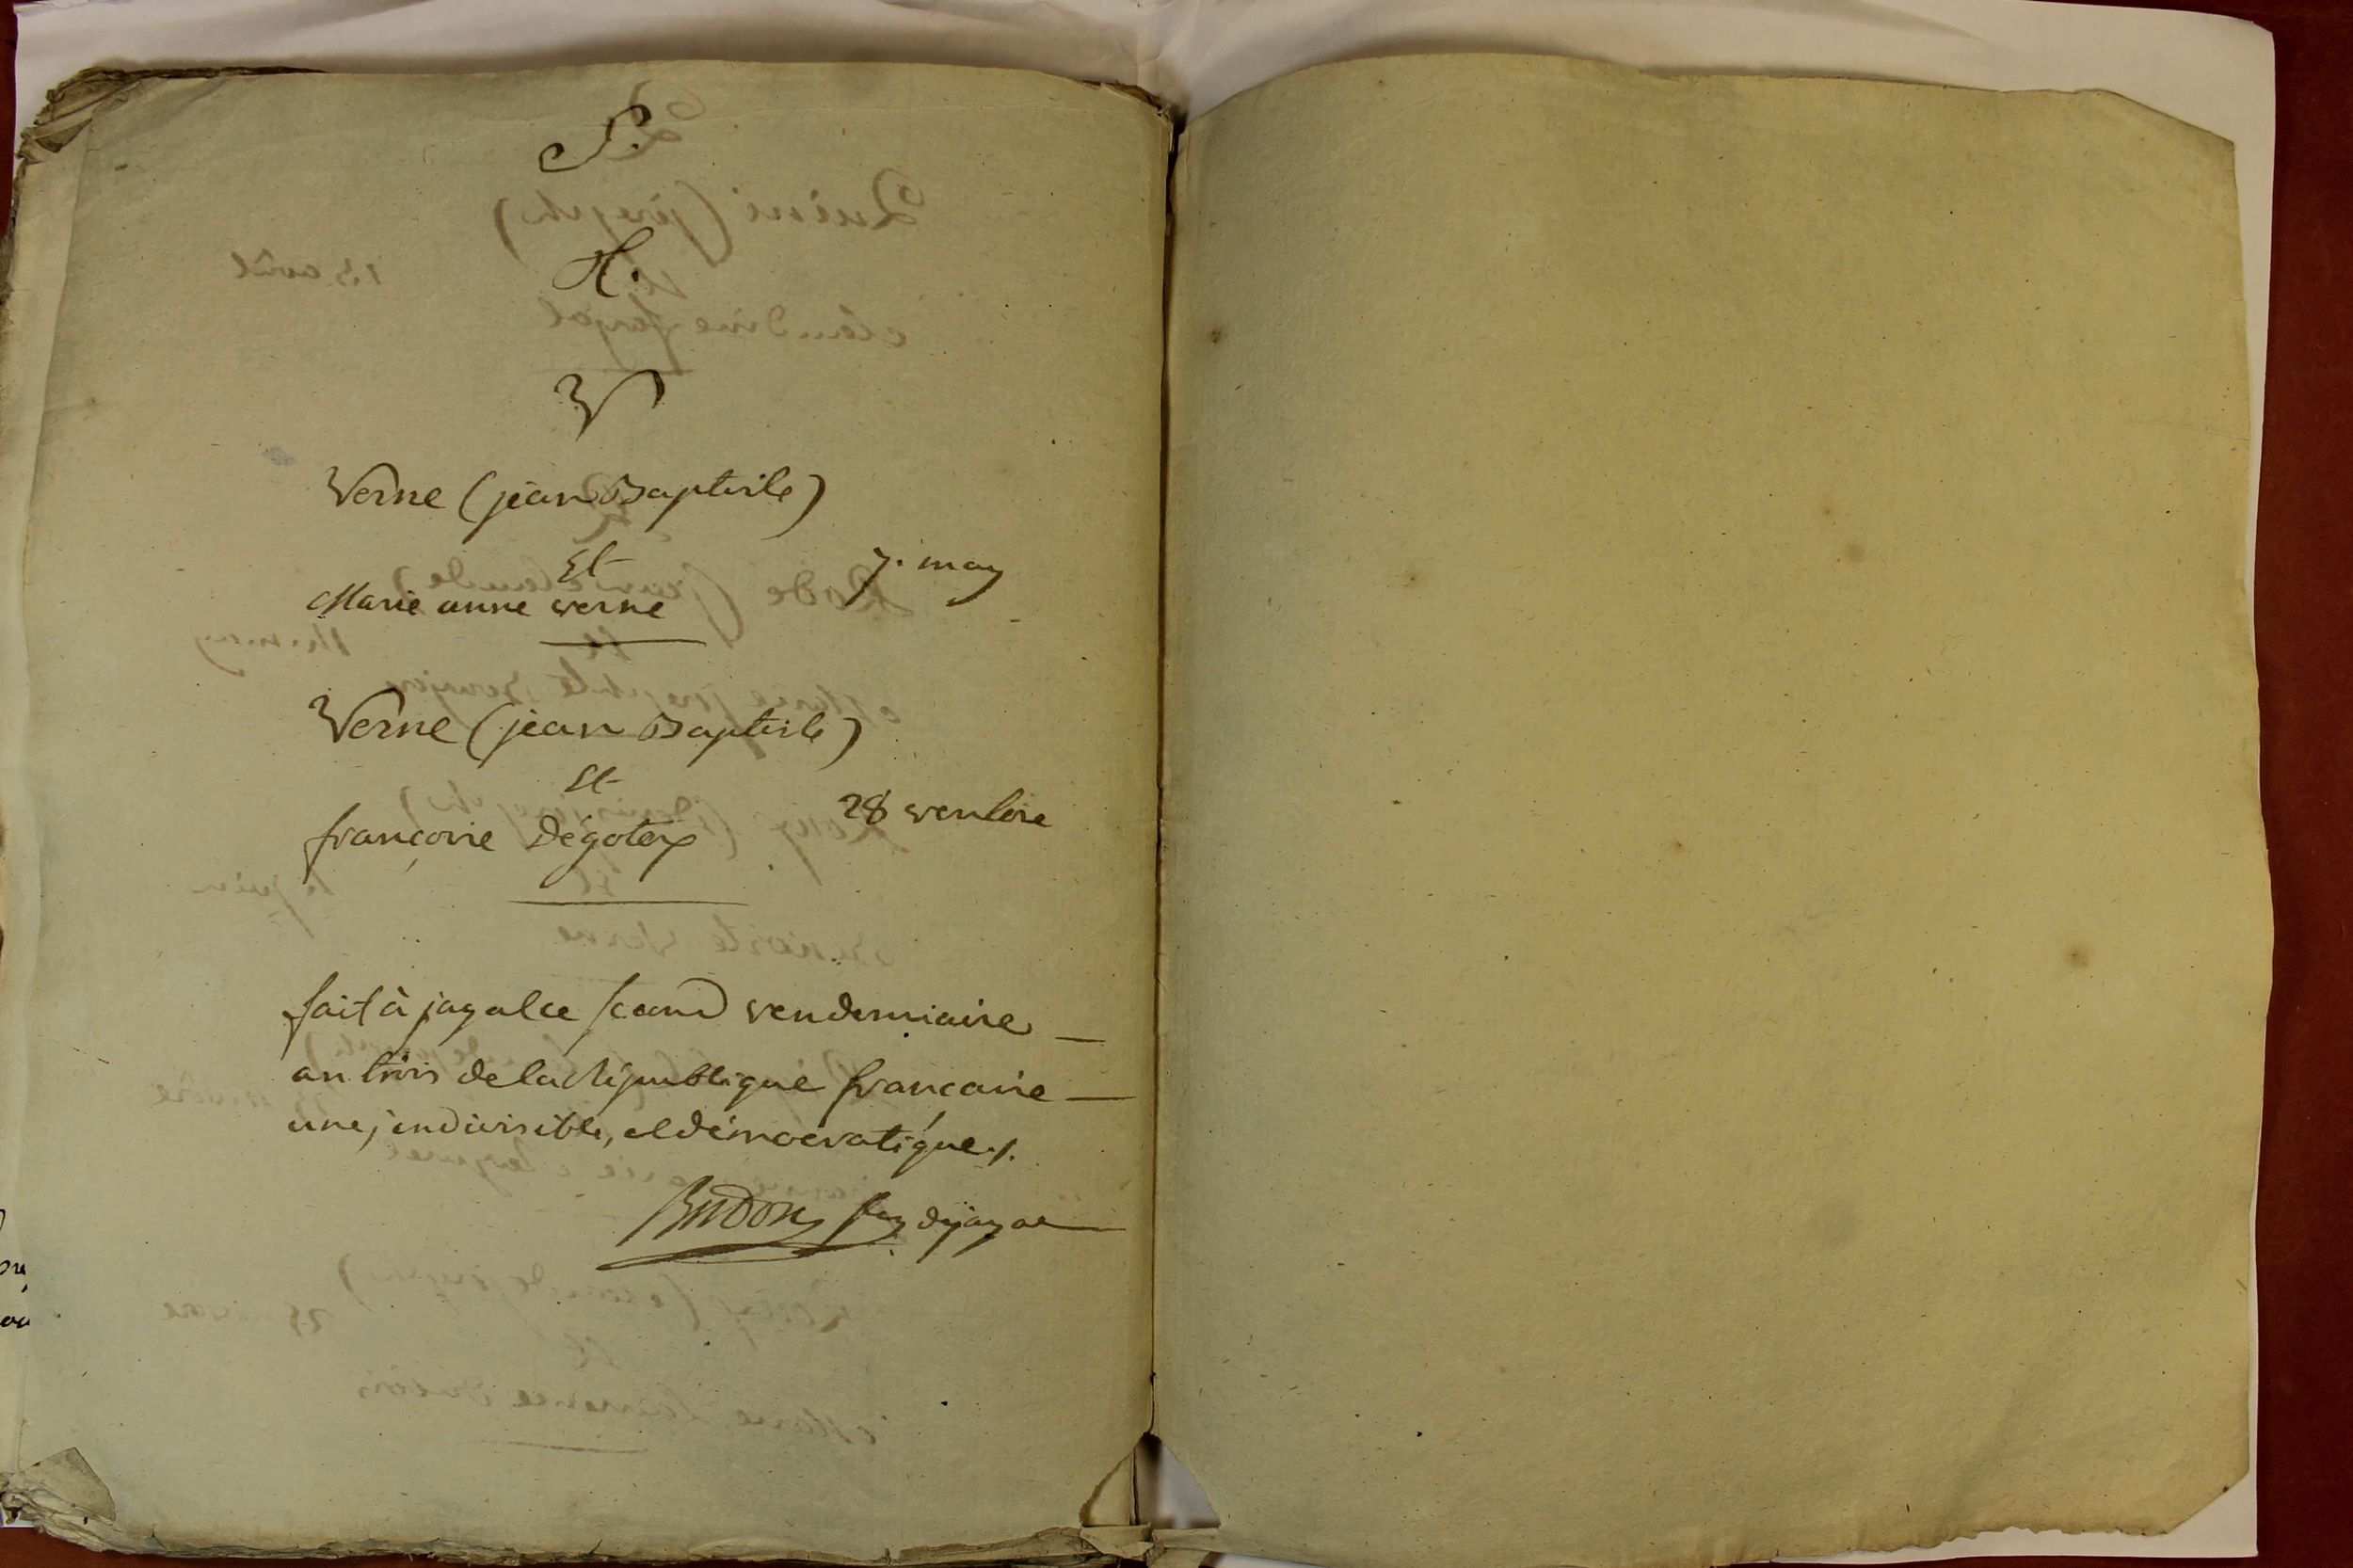 S.
H.
V
Verne (jean Baptiste)
Et
7. may
Marie anne verne
Verne (jean Baptiste)
Et
28 ventose
françoise Degotex
fait à jagal ce second vendemiaire
an trois de la République française
une, indivisible, et démocratique ./.